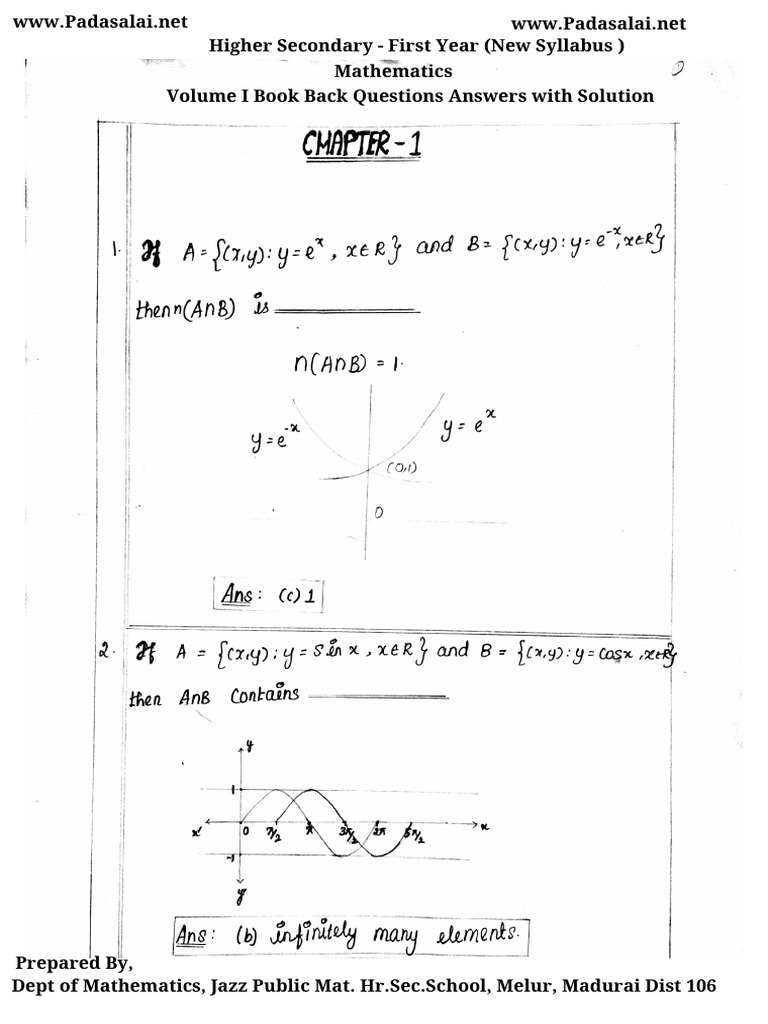 www.Padasalai.net www.Padasalai.net
Higher Secondary - First Year (New Syllabus )
Mathematics
Volume I Book Back Questions Answers with Solution
CHAPTER - 1
1. If A = {(x,y): y = e^x, x∈R} and B = {(x,y): y = e^-x, x∈R}
then n(A∩B) is
n(A∩B) = 1.
y = e^-x y = e^x
(0,1)
0
Ans: (c) 1
2. If A = {(x,y): y = Sin x, x∈R} and B = {(x,y): y = Cosx, x∈R}
then A∩B Contains
y
1
x' 0 π/2 π 3π/2 2π 5π/2 x
-1
y'
Ans: (b) infinitely many elements.
Prepared By,
Dept of Mathematics, Jazz Public Mat. Hr.Sec.School, Melur, Madurai Dist 106